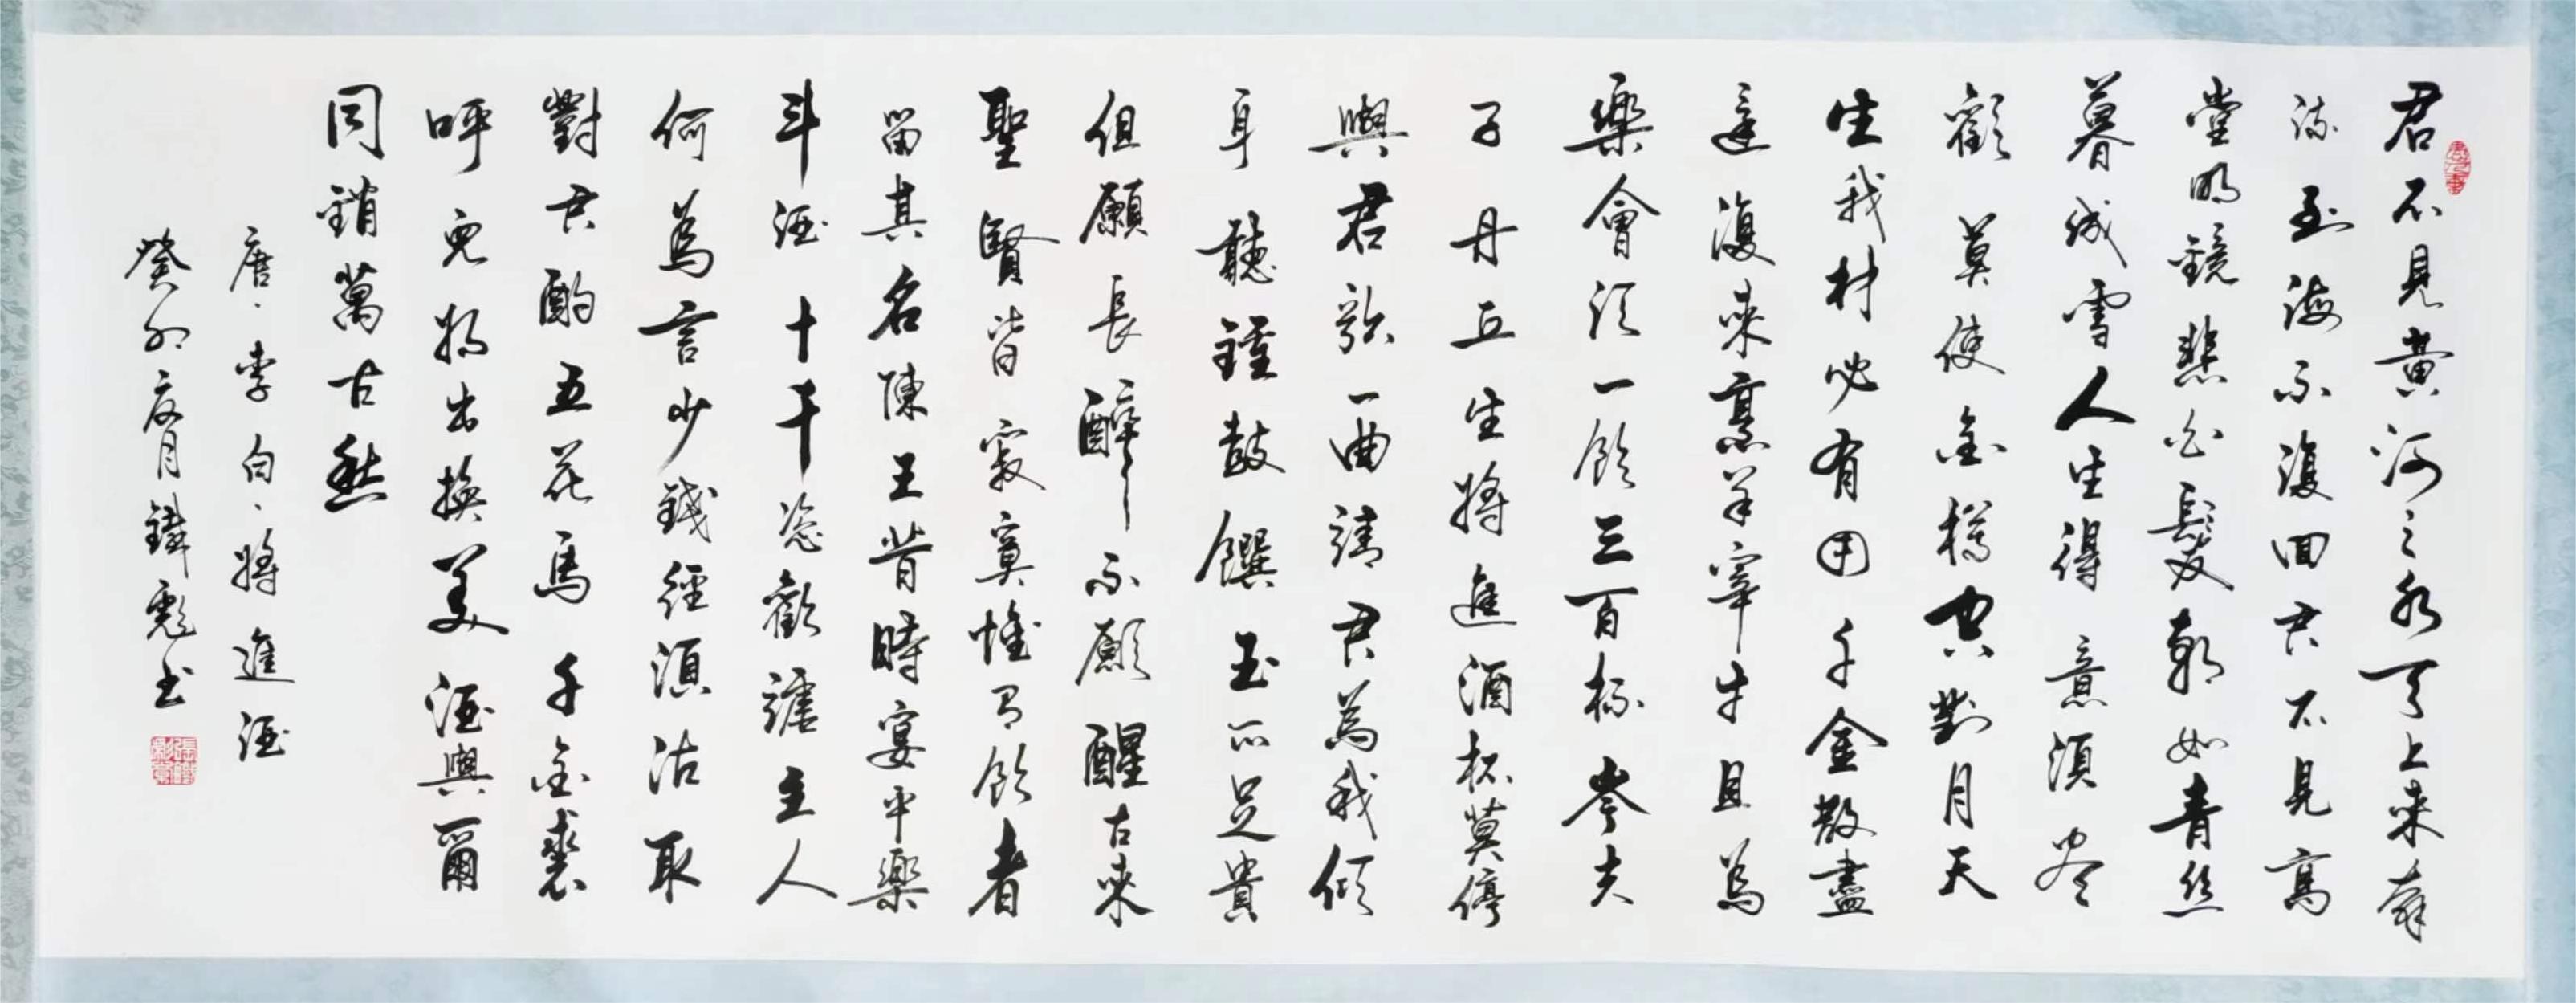 君不見黃河之水天上來奔
流到海不復回君不見高
堂明鏡悲白髮朝如青絲
暮成雪人生得意須尽
歡莫使金樽空對月天
生我材必有用千金散盡
還復來烹羊宰牛且為
樂會須一飲三百杯岑夫
子丹丘生將進酒杯莫停
與君歌一曲請君為我傾
耳聽鐘鼓饌玉不足貴
但願長醉不願醒古來
聖賢皆寂寞惟有飲者
留其名陳王昔時宴平樂
斗酒十千恣歡謔主人
何為言少錢徑須沽取
對君酌五花馬千金裘
呼兒將出換美酒與爾
同銷萬古愁
唐·李白·將進酒
癸卯夏月鐵彪书